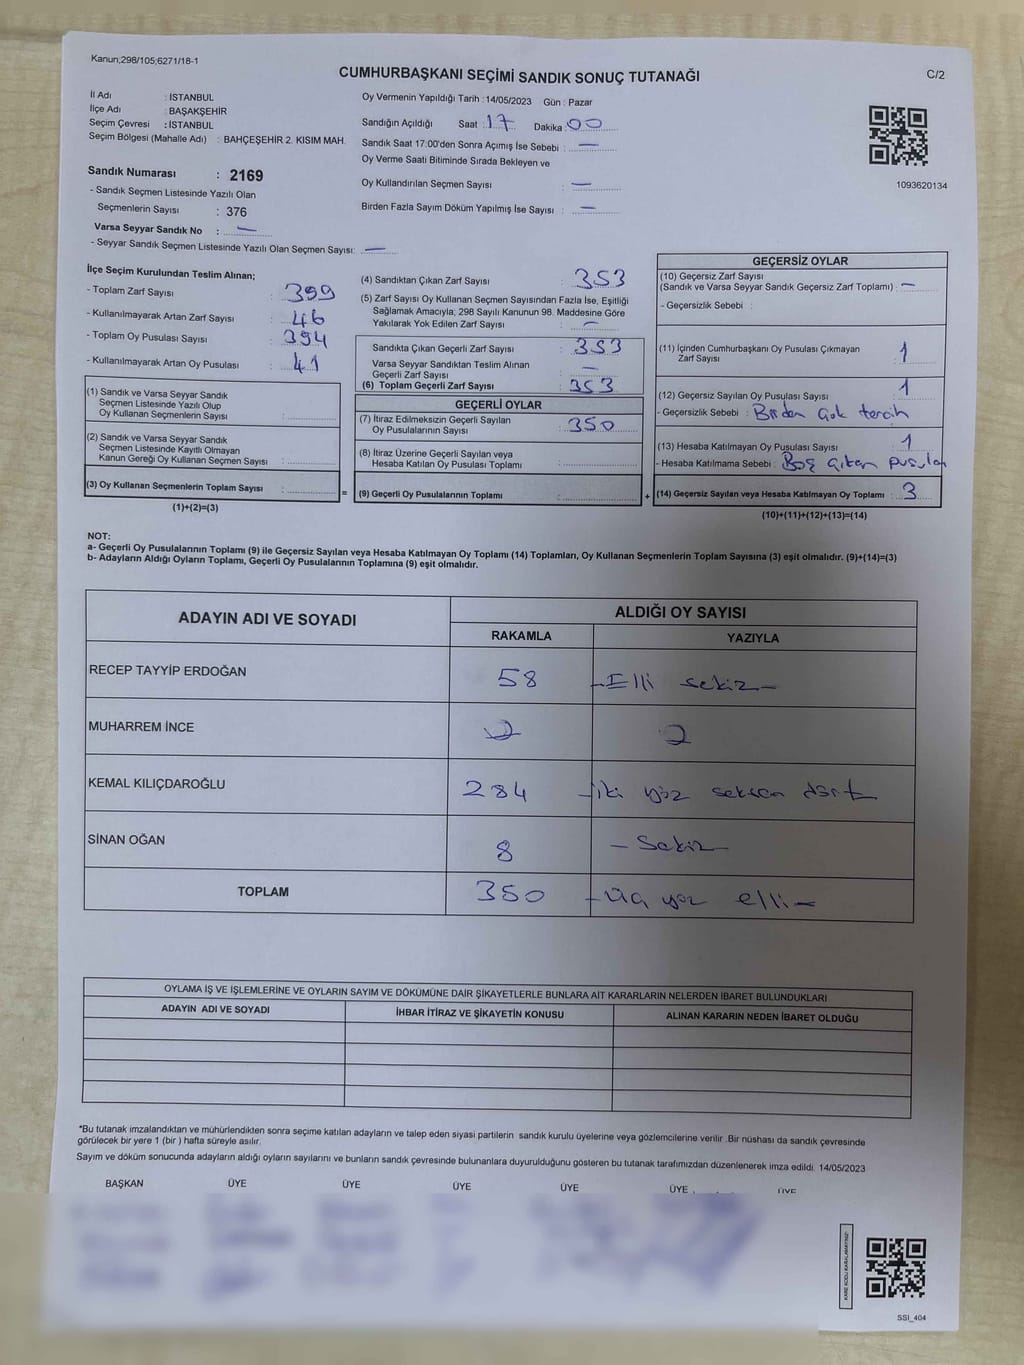 Kanun;298/105;6271/18-1
CUMHURBAŞKANI SEÇİMİ SANDIK SONUÇ TUTANAĞI
C/2
İl Adı : İSTANBUL
İlçe Adı : BAŞAKŞEHİR
Seçim Çevresi : İSTANBUL
Seçim Bölgesi (Mahalle Adı) : BAHÇEŞEHİR 2. KISIM MAH.
Oy Vermenin Yapıldığı Tarih : 14/05/2023 Gün : Pazar
Sandığın Açıldığı Saat : 17 Dakika : 00
Sandık Saat 17:00'den Sonra Açımış İse Sebebi : —
Oy Verme Saati Bitiminde Sırada Bekleyen ve
Oy Kullandırılan Seçmen Sayısı : —
Birden Fazla Sayım Döküm Yapılmış İse Sayısı : —
1093620134
Sandık Numarası : 2169
- Sandık Seçmen Listesinde Yazılı Olan
Seçmenlerin Sayısı : 376
Varsa Seyyar Sandık No : —
- Seyyar Sandık Seçmen Listesinde Yazılı Olan Seçmen Sayısı: —
İlçe Seçim Kurulundan Teslim Alınan;
- Toplam Zarf Sayısı : 399
- Kullanılmayarak Artan Zarf Sayısı : 46
- Toplam Oy Pusulası Sayısı : 394
- Kullanılmayarak Artan Oy Pusulası : 41
(1) Sandık ve Varsa Seyyar Sandık
Seçmen Listesinde Yazılı Olup
Oy Kullanan Seçmenlerin Sayısı :
(2) Sandık ve Varsa Seyyar Sandık
Seçmen Listesinde Kayıtlı Olmayan
Kanun Gereği Oy Kullanan Seçmen Sayısı :
(3) Oy Kullanan Seçmenlerin Toplam Sayısı :
(1)+(2)=(3)
(4) Sandıktan Çıkan Zarf Sayısı : 353
(5) Zarf Sayısı Oy Kullanan Seçmen Sayısından Fazla İse, Eşitliği
Sağlamak Amacıyla; 298 Sayılı Kanunun 98. Maddesine Göre
Yakılarak Yok Edilen Zarf Sayısı : —
Sandıkta Çıkan Geçerli Zarf Sayısı : 353
Varsa Seyyar Sandıktan Teslim Alınan
Geçerli Zarf Sayısı : —
(6) Toplam Geçerli Zarf Sayısı : 353
GEÇERLİ OYLAR
(7) İtiraz Edilmeksizin Geçerli Sayılan
Oy Pusulalarının Sayısı : 350
(8) İtiraz Üzerine Geçerli Sayılan veya
Hesaba Katılan Oy Pusulası Toplamı :
= (9) Geçerli Oy Pusulalarının Toplamı : +
GEÇERSİZ OYLAR
(10) Geçersiz Zarf Sayısı
(Sandık ve Varsa Seyyar Sandık Geçersiz Zarf Toplamı) : —
- Geçersizlik Sebebi :
(11) İçinden Cumhurbaşkanı Oy Pusulası Çıkmayan
Zarf Sayısı : 1
(12) Geçersiz Sayılan Oy Pusulası Sayısı : 1
- Geçersizlik Sebebi : Birden çok tercih
(13) Hesaba Katılmayan Oy Pusulası Sayısı : 1
- Hesaba Katılmama Sebebi : Boş çıkan pusulan
(14) Geçersiz Sayılan veya Hesaba Katılmayan Oy Toplamı : 3
(10)+(11)+(12)+(13)=(14)
NOT:
a- Geçerli Oy Pusulalarının Toplamı (9) ile Geçersiz Sayılan veya Hesaba Katılmayan Oy Toplamı (14) Toplamları, Oy Kullanan Seçmenlerin Toplam Sayısına (3) eşit olmalıdır. (9)+(14)=(3)
b- Adayların Aldığı Oyların Toplamı, Geçerli Oy Pusulalarının Toplamına (9) eşit olmalıdır.
ADAYIN ADI VE SOYADI
ALDIĞI OY SAYISI
RAKAMLA YAZIYLA
RECEP TAYYİP ERDOĞAN 58 -Elli sekiz-
MUHARREM İNCE
KEMAL KILIÇDAROĞLU 284 -iki yüz seksen dört-
SİNAN OĞAN 8 - Sekiz-
TOPLAM 350 -üç yüz elli-
OYLAMA İŞ VE İŞLEMLERİNE VE OYLARIN SAYIM VE DÖKÜMÜNE DAİR ŞİKAYETLERLE BUNLARA AİT KARARLARIN NELERDEN İBARET BULUNDUKLARI
ADAYIN ADI VE SOYADI İHBAR İTİRAZ VE ŞİKAYETİN KONUSU ALINAN KARARIN NEDEN İBARET OLDUĞU
*Bu tutanak imzalandıktan ve mühürlendikten sonra seçime katılan adayların ve talep eden siyasi partilerin sandık kurulu üyelerine veya gözlemcilerine verilir .Bir nüshası da sandık çevresinde
görülecek bir yere 1 (bir ) hafta süreyle asılır.
Sayım ve döküm sonucunda adayların aldığı oyların sayılarını ve bunların sandık çevresinde bulunanlara duyurulduğunu gösteren bu tutanak tarafımızdan düzenlenerek imza edildi. 14/05/2023
BAŞKAN ÜYE ÜYE ÜYE ÜYE ÜYE ÜYE
SSI_404